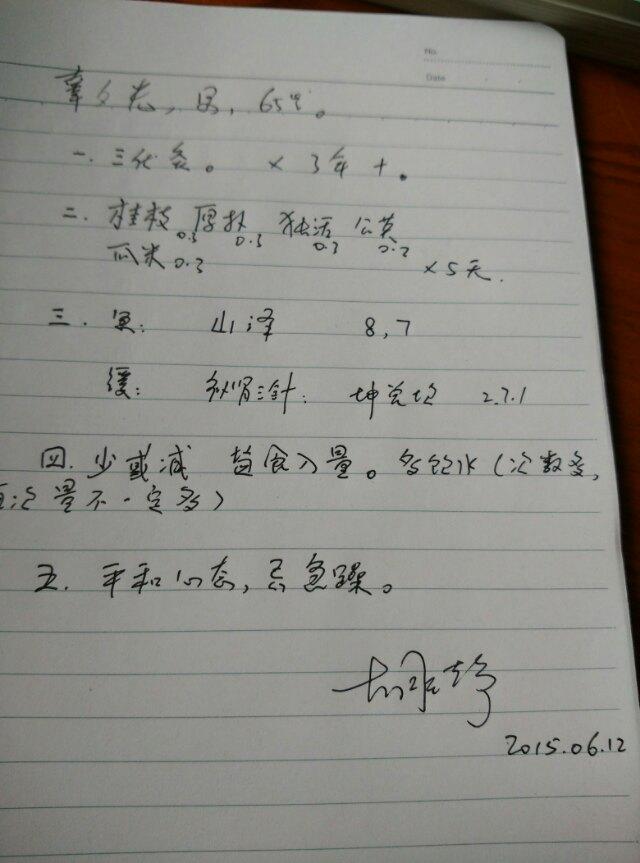 No.
Date
章久志，男，65岁。
一. 三伏灸。 × 3年+。
二. 桂枝0.3 厚朴0.3 独活0.3 公英0.2
瓜米0.3 ×5天.
三. 灸: 山泽 8,7
缓: 三针: 坤 2.7.1
四. 少或减 盐食入量。多饮水(次数多,
每次量不一定多)
五. 平和心态,忌急躁。
2015.06.12